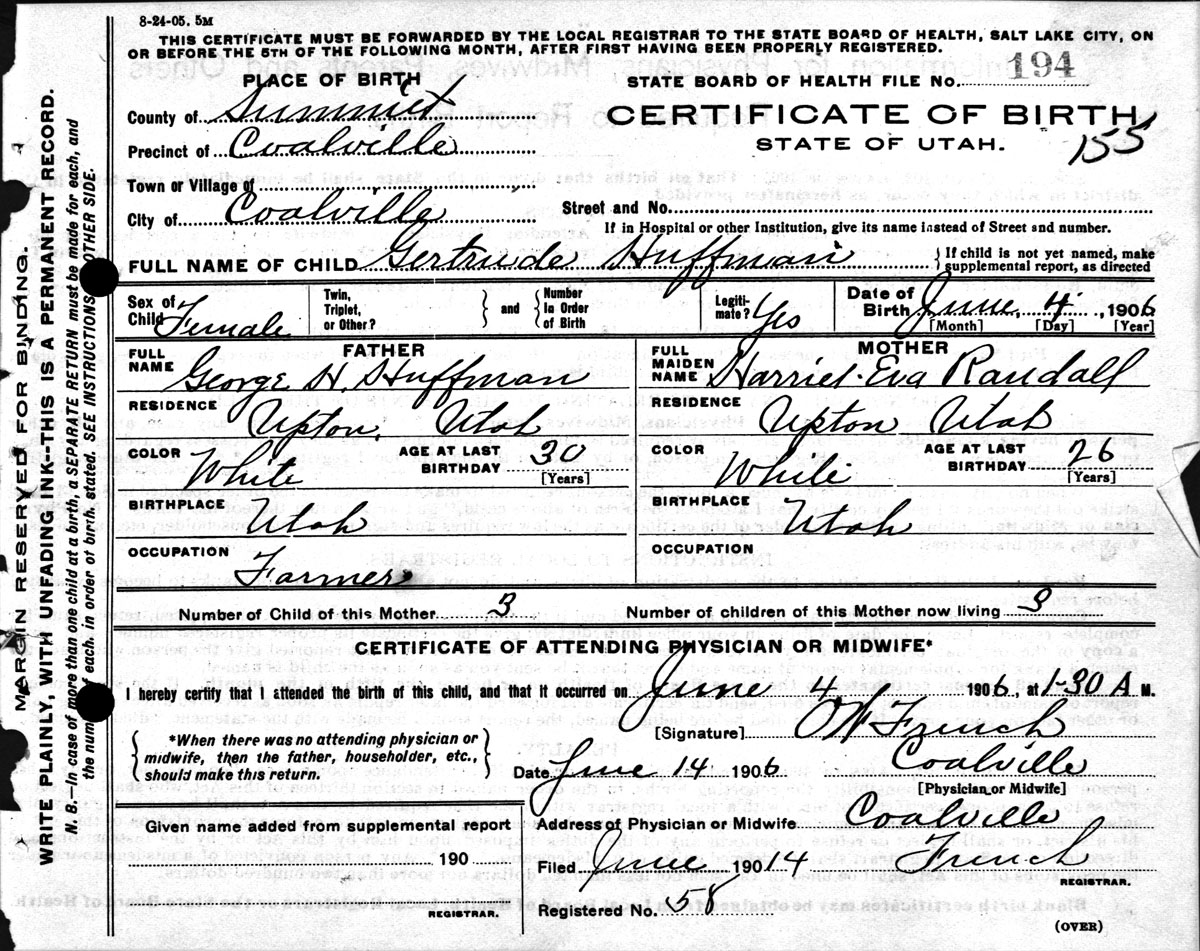 8-24-05. 5M
THIS CERTIFICATE MUST BE FORWARDED BY THE LOCAL REGISTRAR TO THE STATE BOARD OF HEALTH, SALT LAKE CITY, ON
OR BEFORE THE 5TH OF THE FOLLOWING MONTH, AFTER FIRST HAVING BEEN PROPERLY REGISTERED.
PLACE OF BIRTH
STATE BOARD OF HEALTH FILE NO. 194
County of Summit
CERTIFICATE OF BIRTH
Precinct of Coalville
STATE OF UTAH.
155
Town or Village of
City of Coalville
Street and No.
If in Hospital or other Institution, give its name instead of Street and number.
FULL NAME OF CHILD Gertrude Huffman
If child is not yet named, make
supplemental report, as directed
Sex of Child Female
Twin, Triplet, or Other?
and
Number In Order of Birth
Legitimate? Yes
Date of Birth June 4, 1906
[Month] [Day] [Year]
FATHER
FULL NAME George H. Huffman
RESIDENCE Upton, Utah
COLOR White
AGE AT LAST BIRTHDAY 30
[Years]
BIRTHPLACE Utah
OCCUPATION Farmer
MOTHER
FULL MAIDEN NAME Harriet Eva Randall
RESIDENCE Upton Utah
COLOR White
AGE AT LAST BIRTHDAY 26
[Years]
BIRTHPLACE Utah
OCCUPATION
Number of Child of this Mother 3
Number of children of this Mother now living 3
CERTIFICATE OF ATTENDING PHYSICIAN OR MIDWIFE*
I hereby certify that I attended the birth of this child, and that it occurred on June 4 1906, at 1-30 A M.
*When there was no attending physician or
midwife, then the father, householder, etc.,
should make this return.
[Signature] French
Date June 14 1906 Coalville
[Physician or Midwife]
Given name added from supplemental report
190
REGISTRAR.
Address of Physician or Midwife Coalville
Filed June 190 14 French
REGISTRAR.
Registered No. 58
(OVER)
MARGIN RESERVED FOR BINDING.
WRITE PLAINLY, WITH UNFADING INK--THIS IS A PERMANENT RECORD.
N. B.--In case of more than one child at a birth, a SEPARATE RETURN must be made for each, and
the number of each, in order of birth, stated. SEE INSTRUCTIONS OTHER SIDE.